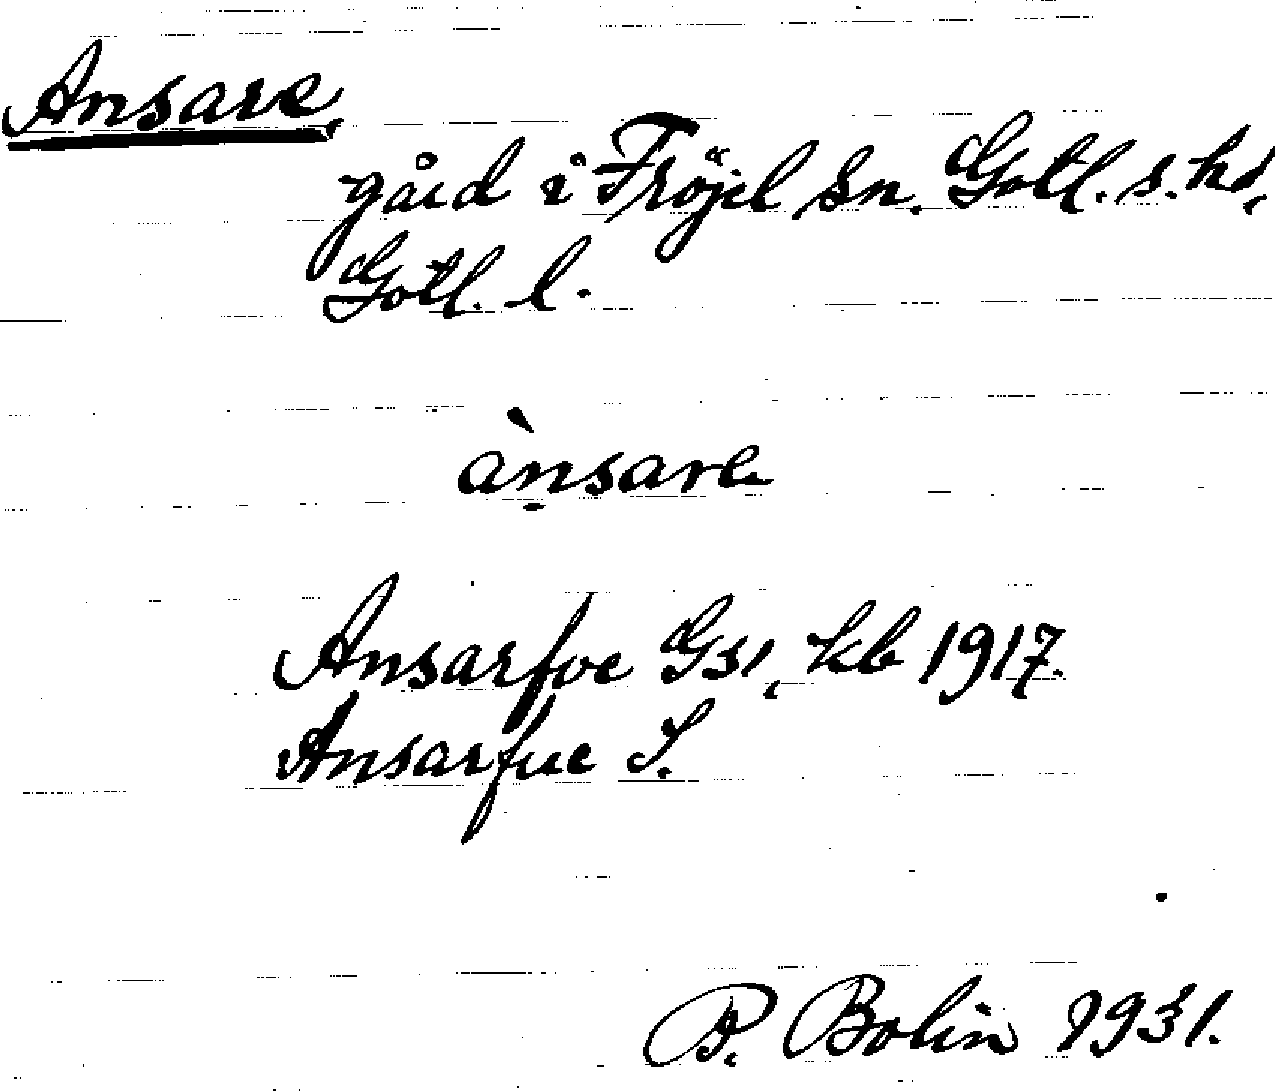 Ansare
gård i Fröjel sn. Gotl. s. hd,
Gotl. l.
ànsare
Ansarfve Gsl, kb 1917.
Ansarfue S.
P. Bolin 1931.